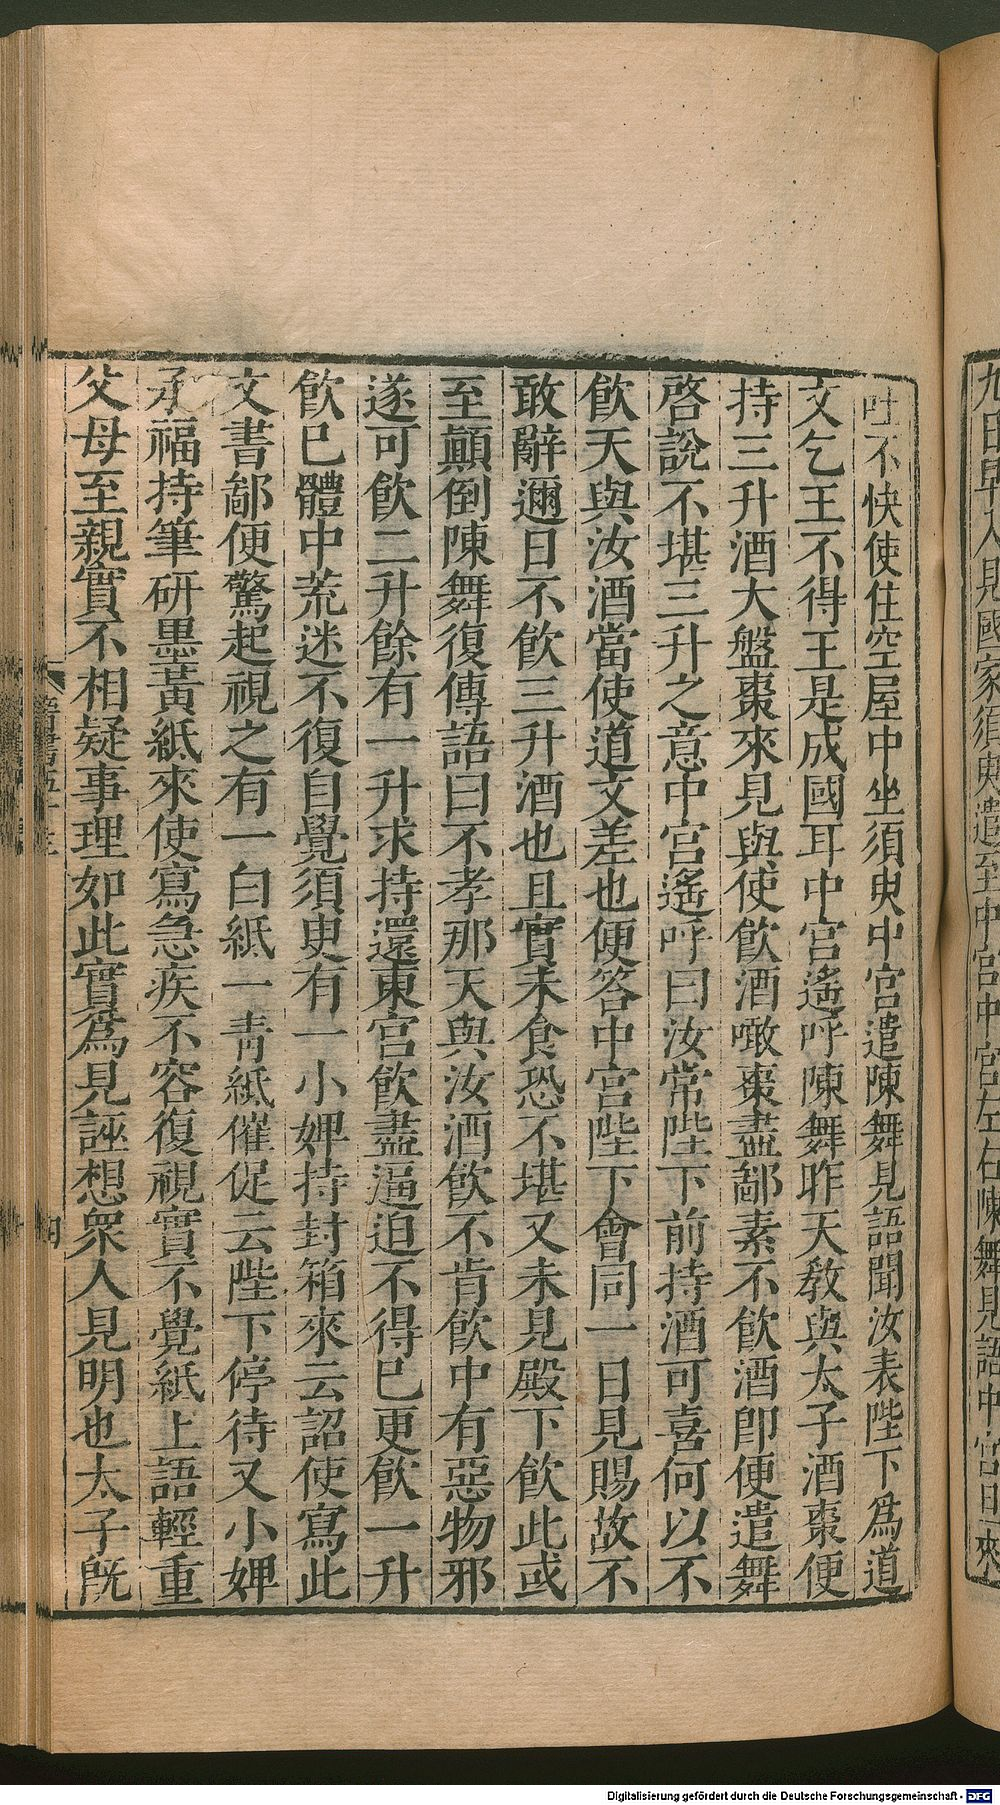 九日早入見國家須臾遣至中宮中宮左右陳舞見語中宮旦來
吐不快使住空屋中坐須臾中宮遣陳舞見語聞汝表陛下爲道
文乞王不得王是成國耳中宮遙呼陳舞昨天教與太子酒棗便
持三升酒大盤棗來見與使飲酒噉棗盡鄙素不飲酒卽便遣舞
啓說不堪三升之意中宮遙呼曰汝常陛下前持酒可喜何以不
飲天與汝酒當使道文差也便答中宮陛下會同一日見賜故不
敢辭邇日不飲三升酒也且實未食恐不堪又未見殿下飲此或
至顚倒陳舞復傳語曰不孝那天與汝酒飲不肯飲中有惡物邪
遂可飲二升餘有一升求持還東宮飲盡逼迫不得已更飲一升
飲已體中荒迷不復自覺須臾有一小婢持封箱來云詔使寫此
文書鄙便驚起視之有一白紙一青紙催促云陛下停待又小婢
承福持筆研墨黃紙來使寫急疾不容復視實不覺紙上語輕重
父母至親實不相疑事理如此實爲見誣想衆人見明也太子旣
晉書五十三
四
Digitalisierung gefördert durch die Deutsche Forschungsgemeinschaft - DFG